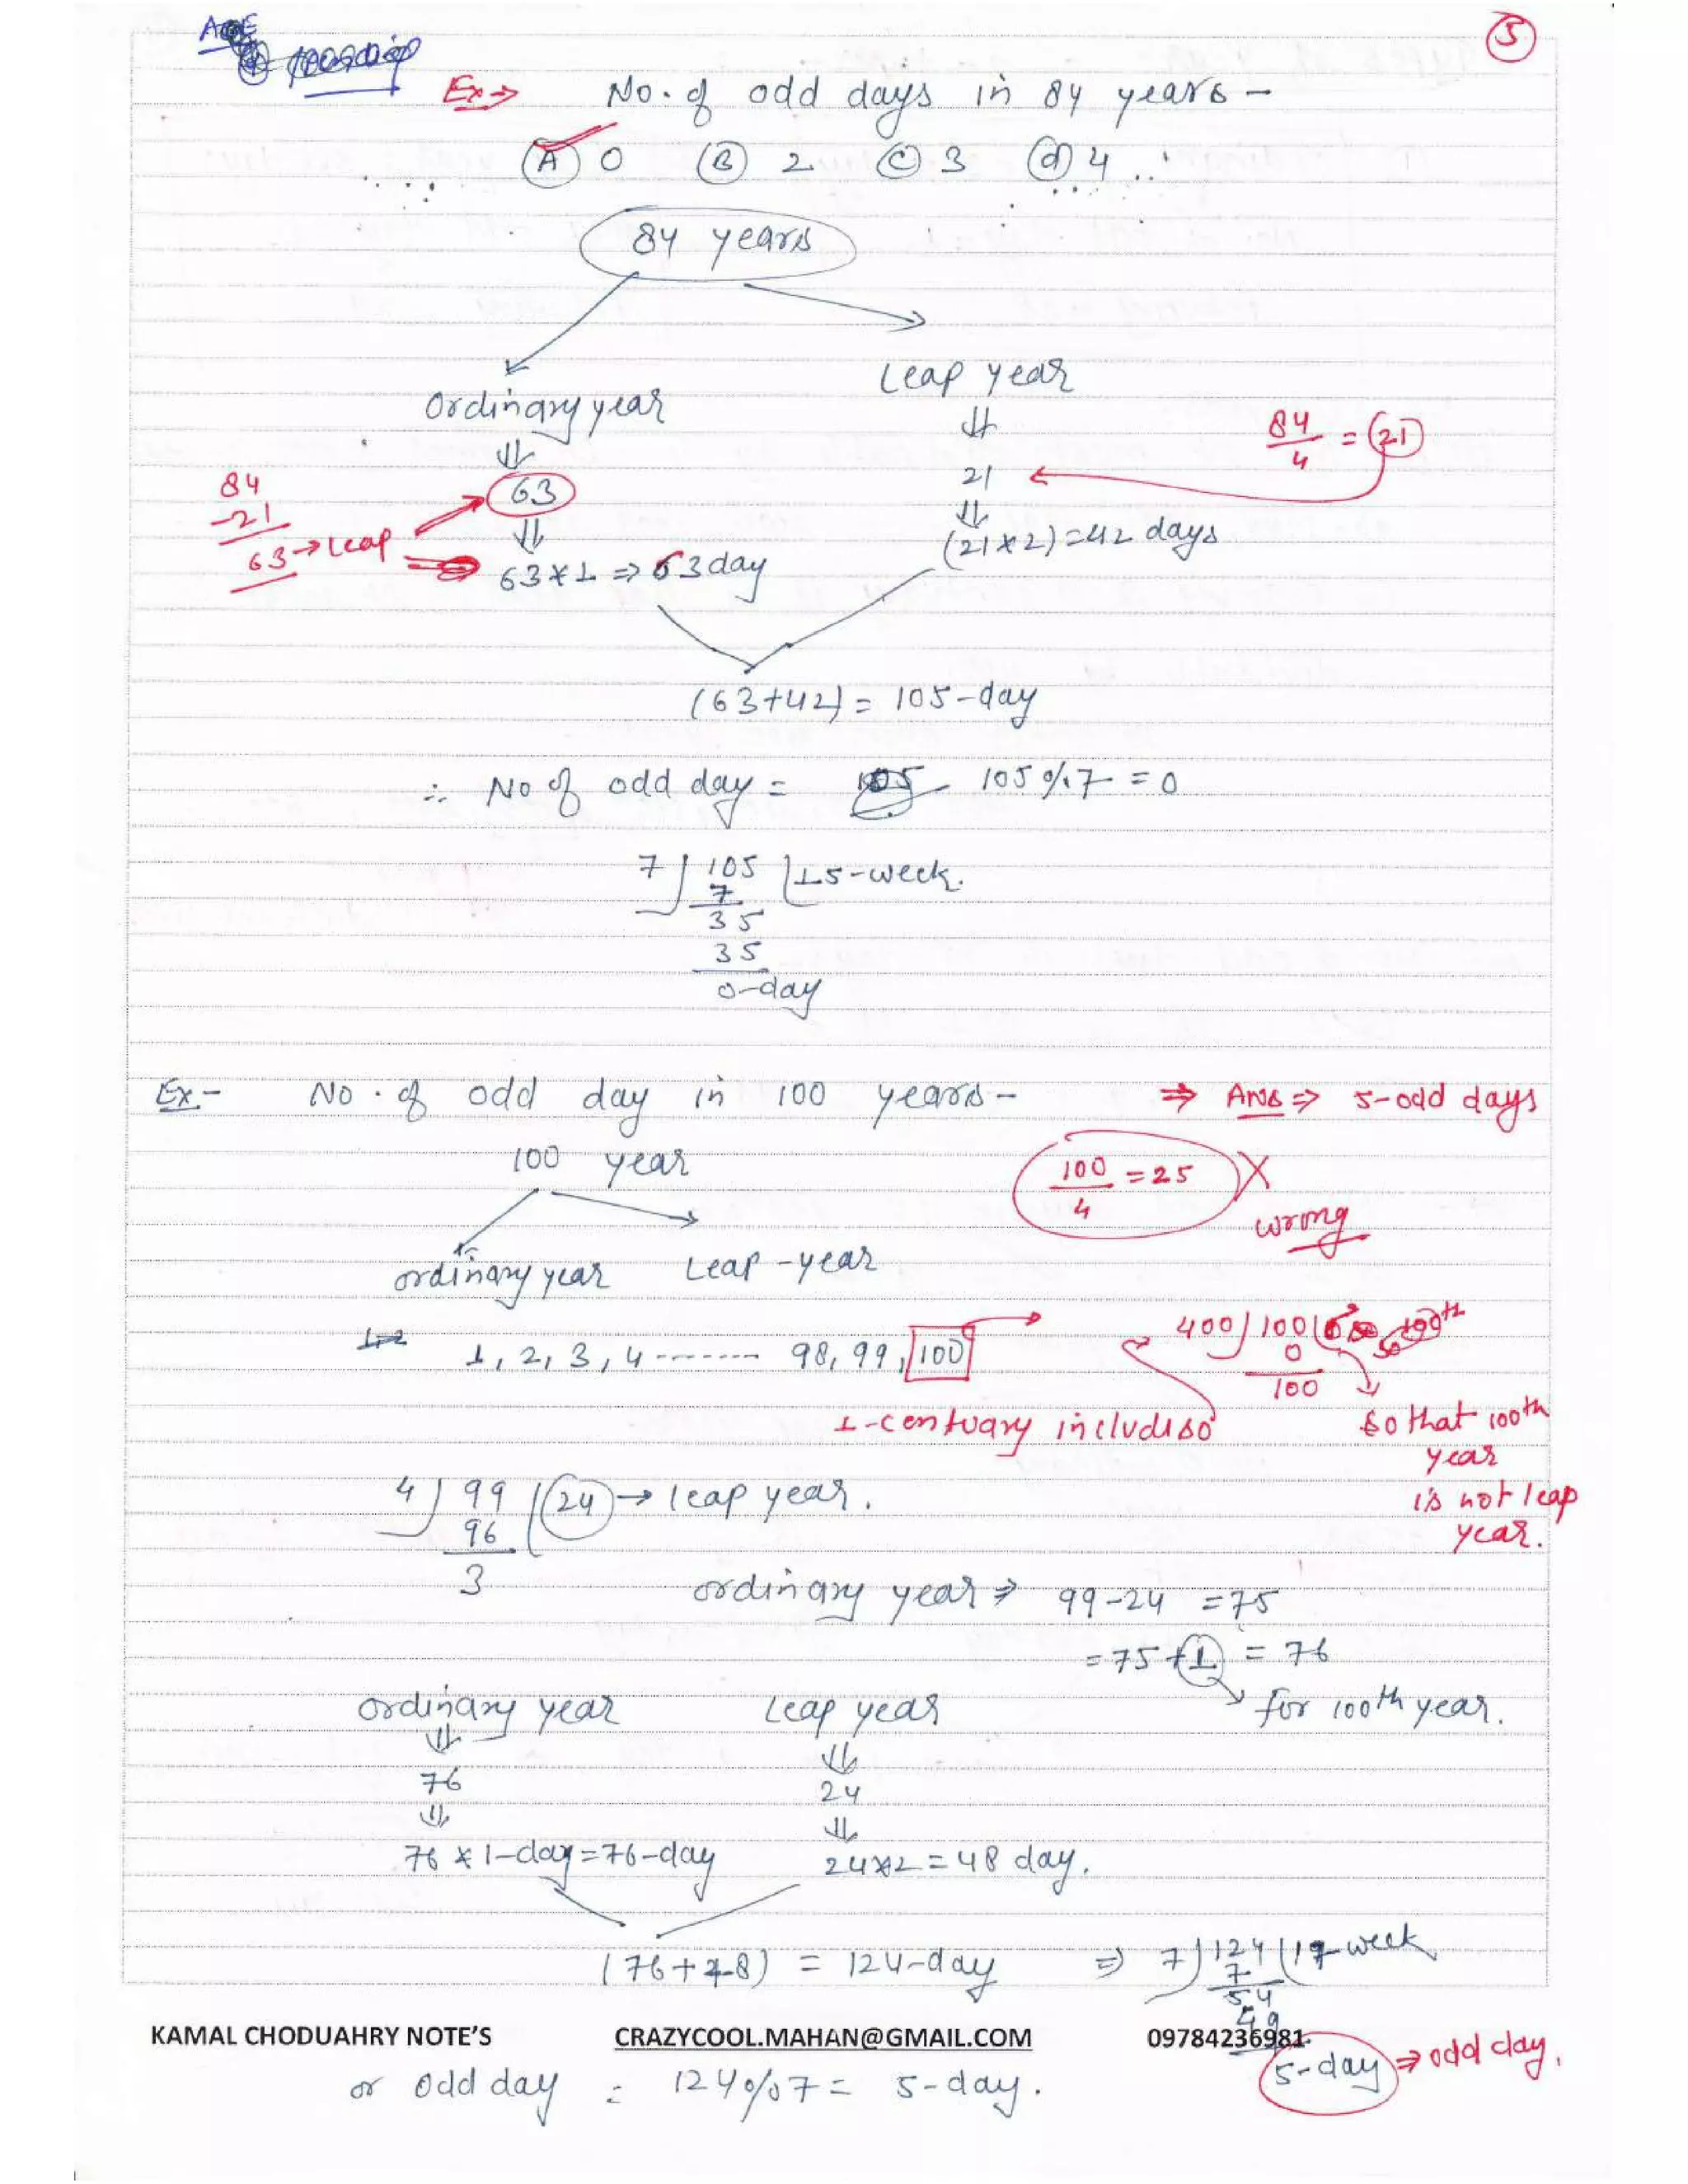 AGE
5
Ex→ No. of odd days in 84 years -
(A) 0 (B) 2 (C) 3 (d) 4
84 years
Leap year
Ordinary year
⇓
84/4 = 21
⇓
21
84
63
⇓
-21
⇓
63 → Leap
(21*2)=42 days
63*1 ⇒ 63 day
(63+42) = 105-day
∴ No of odd day = 105 105%7 = 0
7 ) 105 ( 15-week.
7
35
35
0-day
Ex- No. of odd day in 100 years- ⇒ Ans ⇒ 5-odd days
100 year
100/4 = 25 X
wrong
ordinary year Leap-year
1, 2, 3, 4 ------- 98, 99, 100
400 ) 100 ( 0 100th
0
100
1-centuary includ so
so that 100th
year
is not leap
year.
4 ) 99 ( 24 → leap year.
96
3
ordinary year ⇒ 99-24 = 75
= 75+1 = 76
for 100th year.
ordinary year Leap year
⇓ ⇓
76 24
⇓ ⇓
76 * 1-day=76-day 24*2=48 day.
(76+48) = 124-day ⇒ 7 ) 124 ( 17-week
7
54
49
KAMAL CHODUAHRY NOTE'S CRAZYCOOL.MAHAN@GMAIL.COM 09784236981
5-day ⇒ odd day.
or odd day = 124%7 = 5-day.